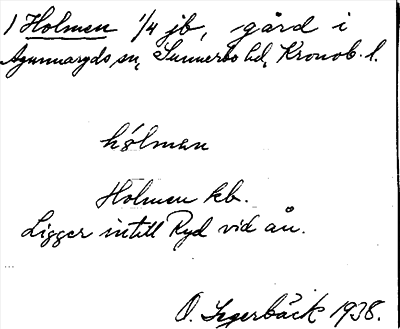 1 Holmen 1/4 jb, gård i
Agunnaryds sn, Sunnerbo hd, Kronob. l.
hólman
Holmen kb.
Ligger intill Ryd vid ån.
O. Segerbäck 1938.